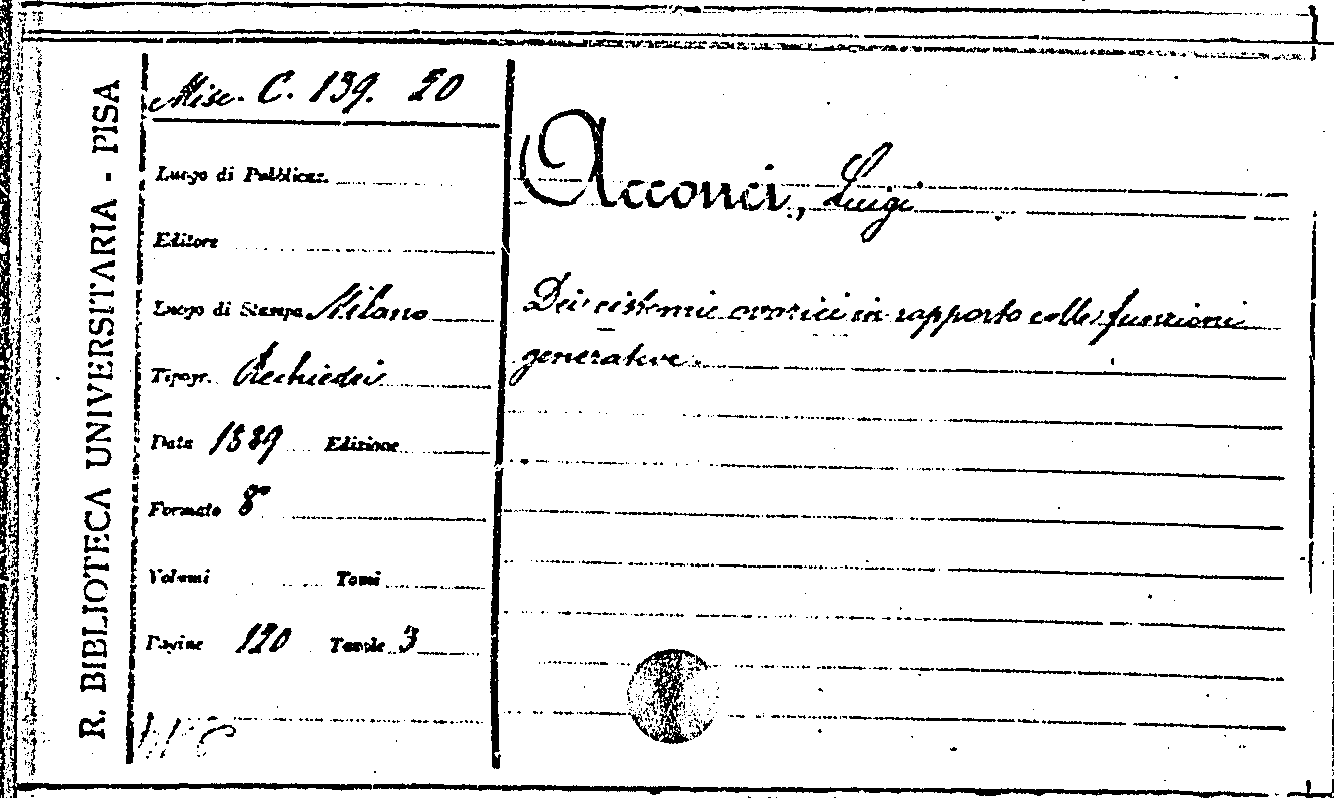 R. BIBLIOTECA UNIVERSITARIA - PISA
Misc. C. 139. 20
Luogo di Pubblicaz.
Editore
Luogo di Stampa Milano
Tipogr. Rechiedei
Data 1889 Edizione
Formato 8°
Volumi Tomi
Pagine 120 Tavole 3
Acconci, Luigi
Dei cistomi ovarici in rapporto colle funzioni
generative.